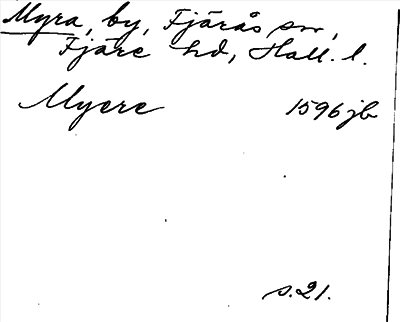 Myra, by, Fjärås sn,
Fjäre hd, Hall. l.
Myere 1596 jb
s. 21.